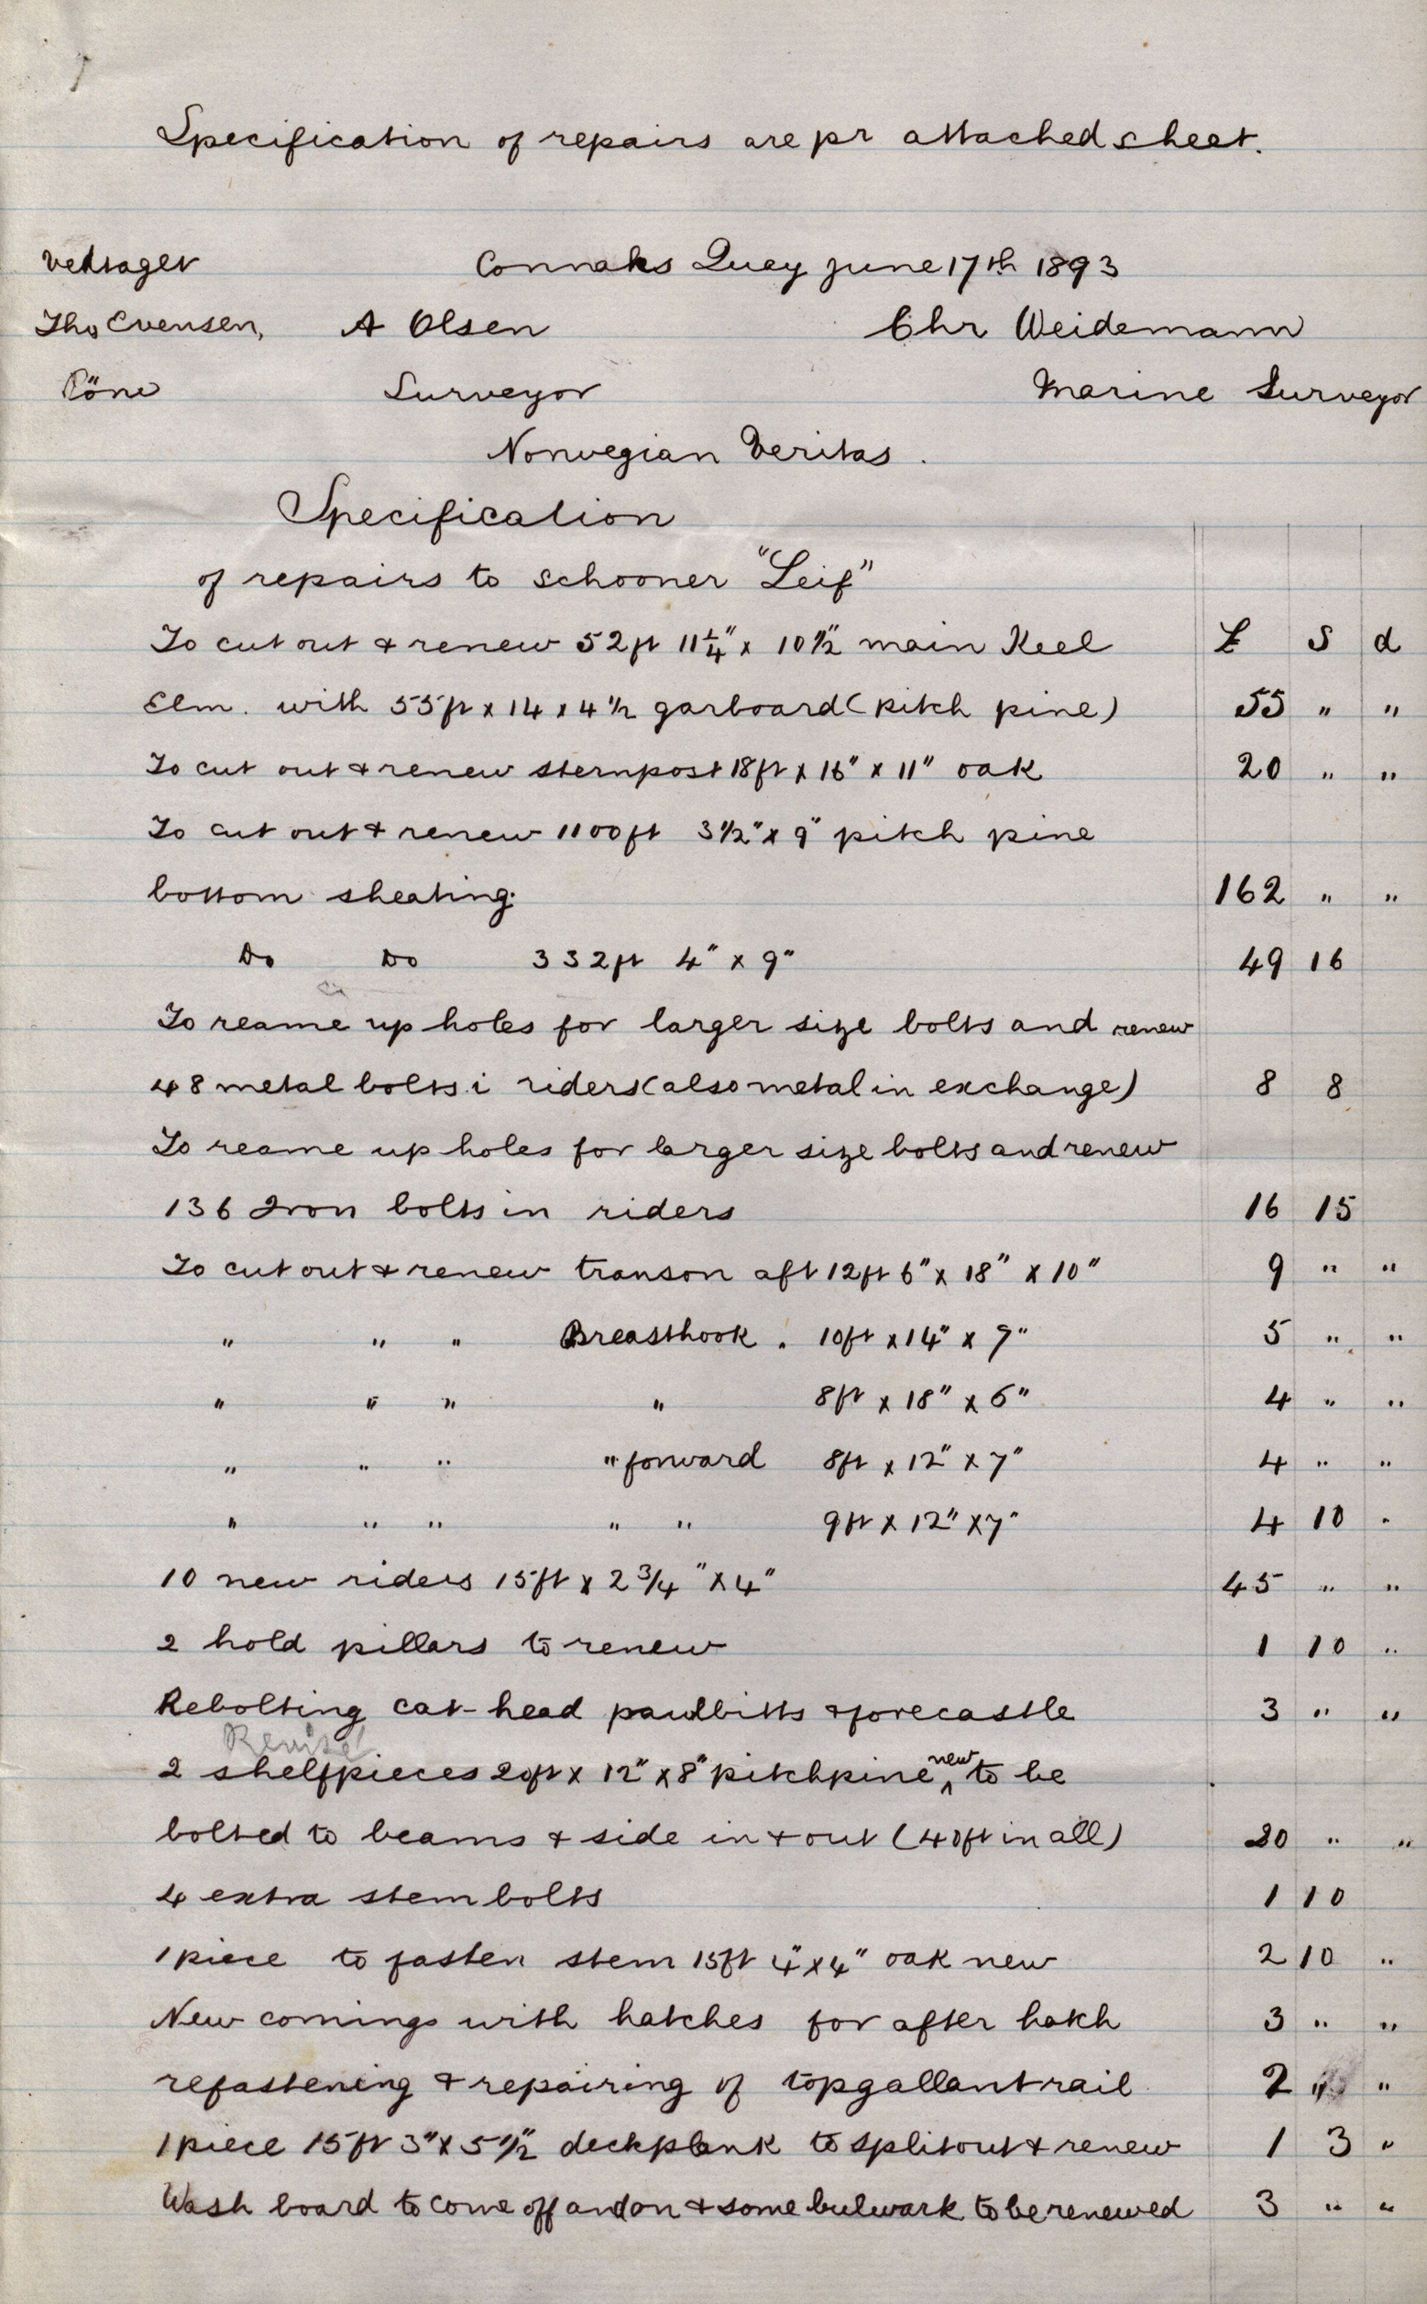 Specification of repairs are pr attached sheet.
Vedtaget Connahs Quey june 17th 1893
Ths Evensen, A Olsen Chr Weidemann
Surveyor Marine Surveyor
Norwegian Veritas.
Specification
of repairs to schooner "Leif"
To cut out & renew 52ft 11¼" x 10½" main Keel £ S d
Elm. with 55ft x 14 x 4½ garboard (pitch pine) 55 " "
To cut out & renew sternpost 18ft x 16" x 11" oak 20 " "
To cut out & renew 1100ft 3½" x 9" pitch pine
bottom sheating. 162 " "
Do Do 332ft 4" x 9" 49 16
To reame up holes for larger size bolts and renew
48 metal bolts i riders (also metal in exchange) 8 8
To reame up holes for larger size bolts and renew
136 Iron bolts in riders 16 15
To cut out & renew transon aft 12ft 6" x 18" x 10" 9 " "
" " " Breasthook . 10ft x 14" x 9" 5 " "
" " " " 8ft x 18" x 6" 4 " "
" " " " forward 8ft x 12" x 7" 4 " "
" " " " " 9ft x 12" x 7" 4 10 "
10 new riders 15ft x 2¾" x 4" 45 " "
2 hold pillars to renew 1 10 "
Rebolting cat-head pawlbitts & forecastle 3 " "
2 shelfpieces 20ft x 12" x 8" pitchpine new to be
bolted to beams & side in & out (40ft in all) 20 " "
4 extra stem bolts 1 10
1 piece to fasten stem 15ft 4" x 4" oak new 2 10 "
New comings with hatches for after hatch 3 " "
refastening & repairing of topgallantrail 2 " "
1 piece 15ft 3" x 5½" deckplank to split out & renew 1 3 "
Wash board to come off and on & some bulwark to be renewed 3 " "